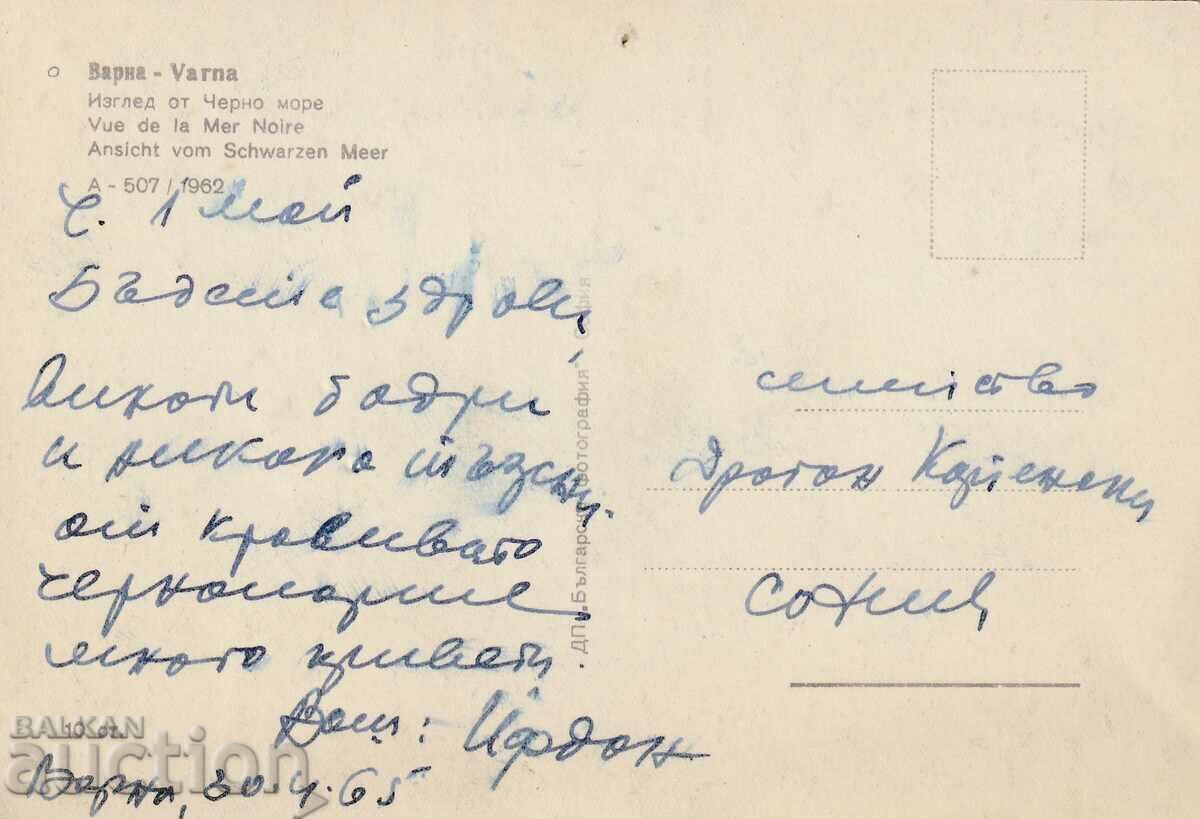 Варна - Varna
Изглед от Черно море
Vue de la Mer Noire
Ansicht vom Schwarzen Meer
А - 507 / 1962
Ч. 1 май
Бъдете здрави,
бодри
и никога тъжни.
от красивото
черноморие
много привети.
Ваш: Йордан
10 ст.
Варна, 30.4.65
ДП „Българска фотография" София
семейство
Драган
BALKAN
auction